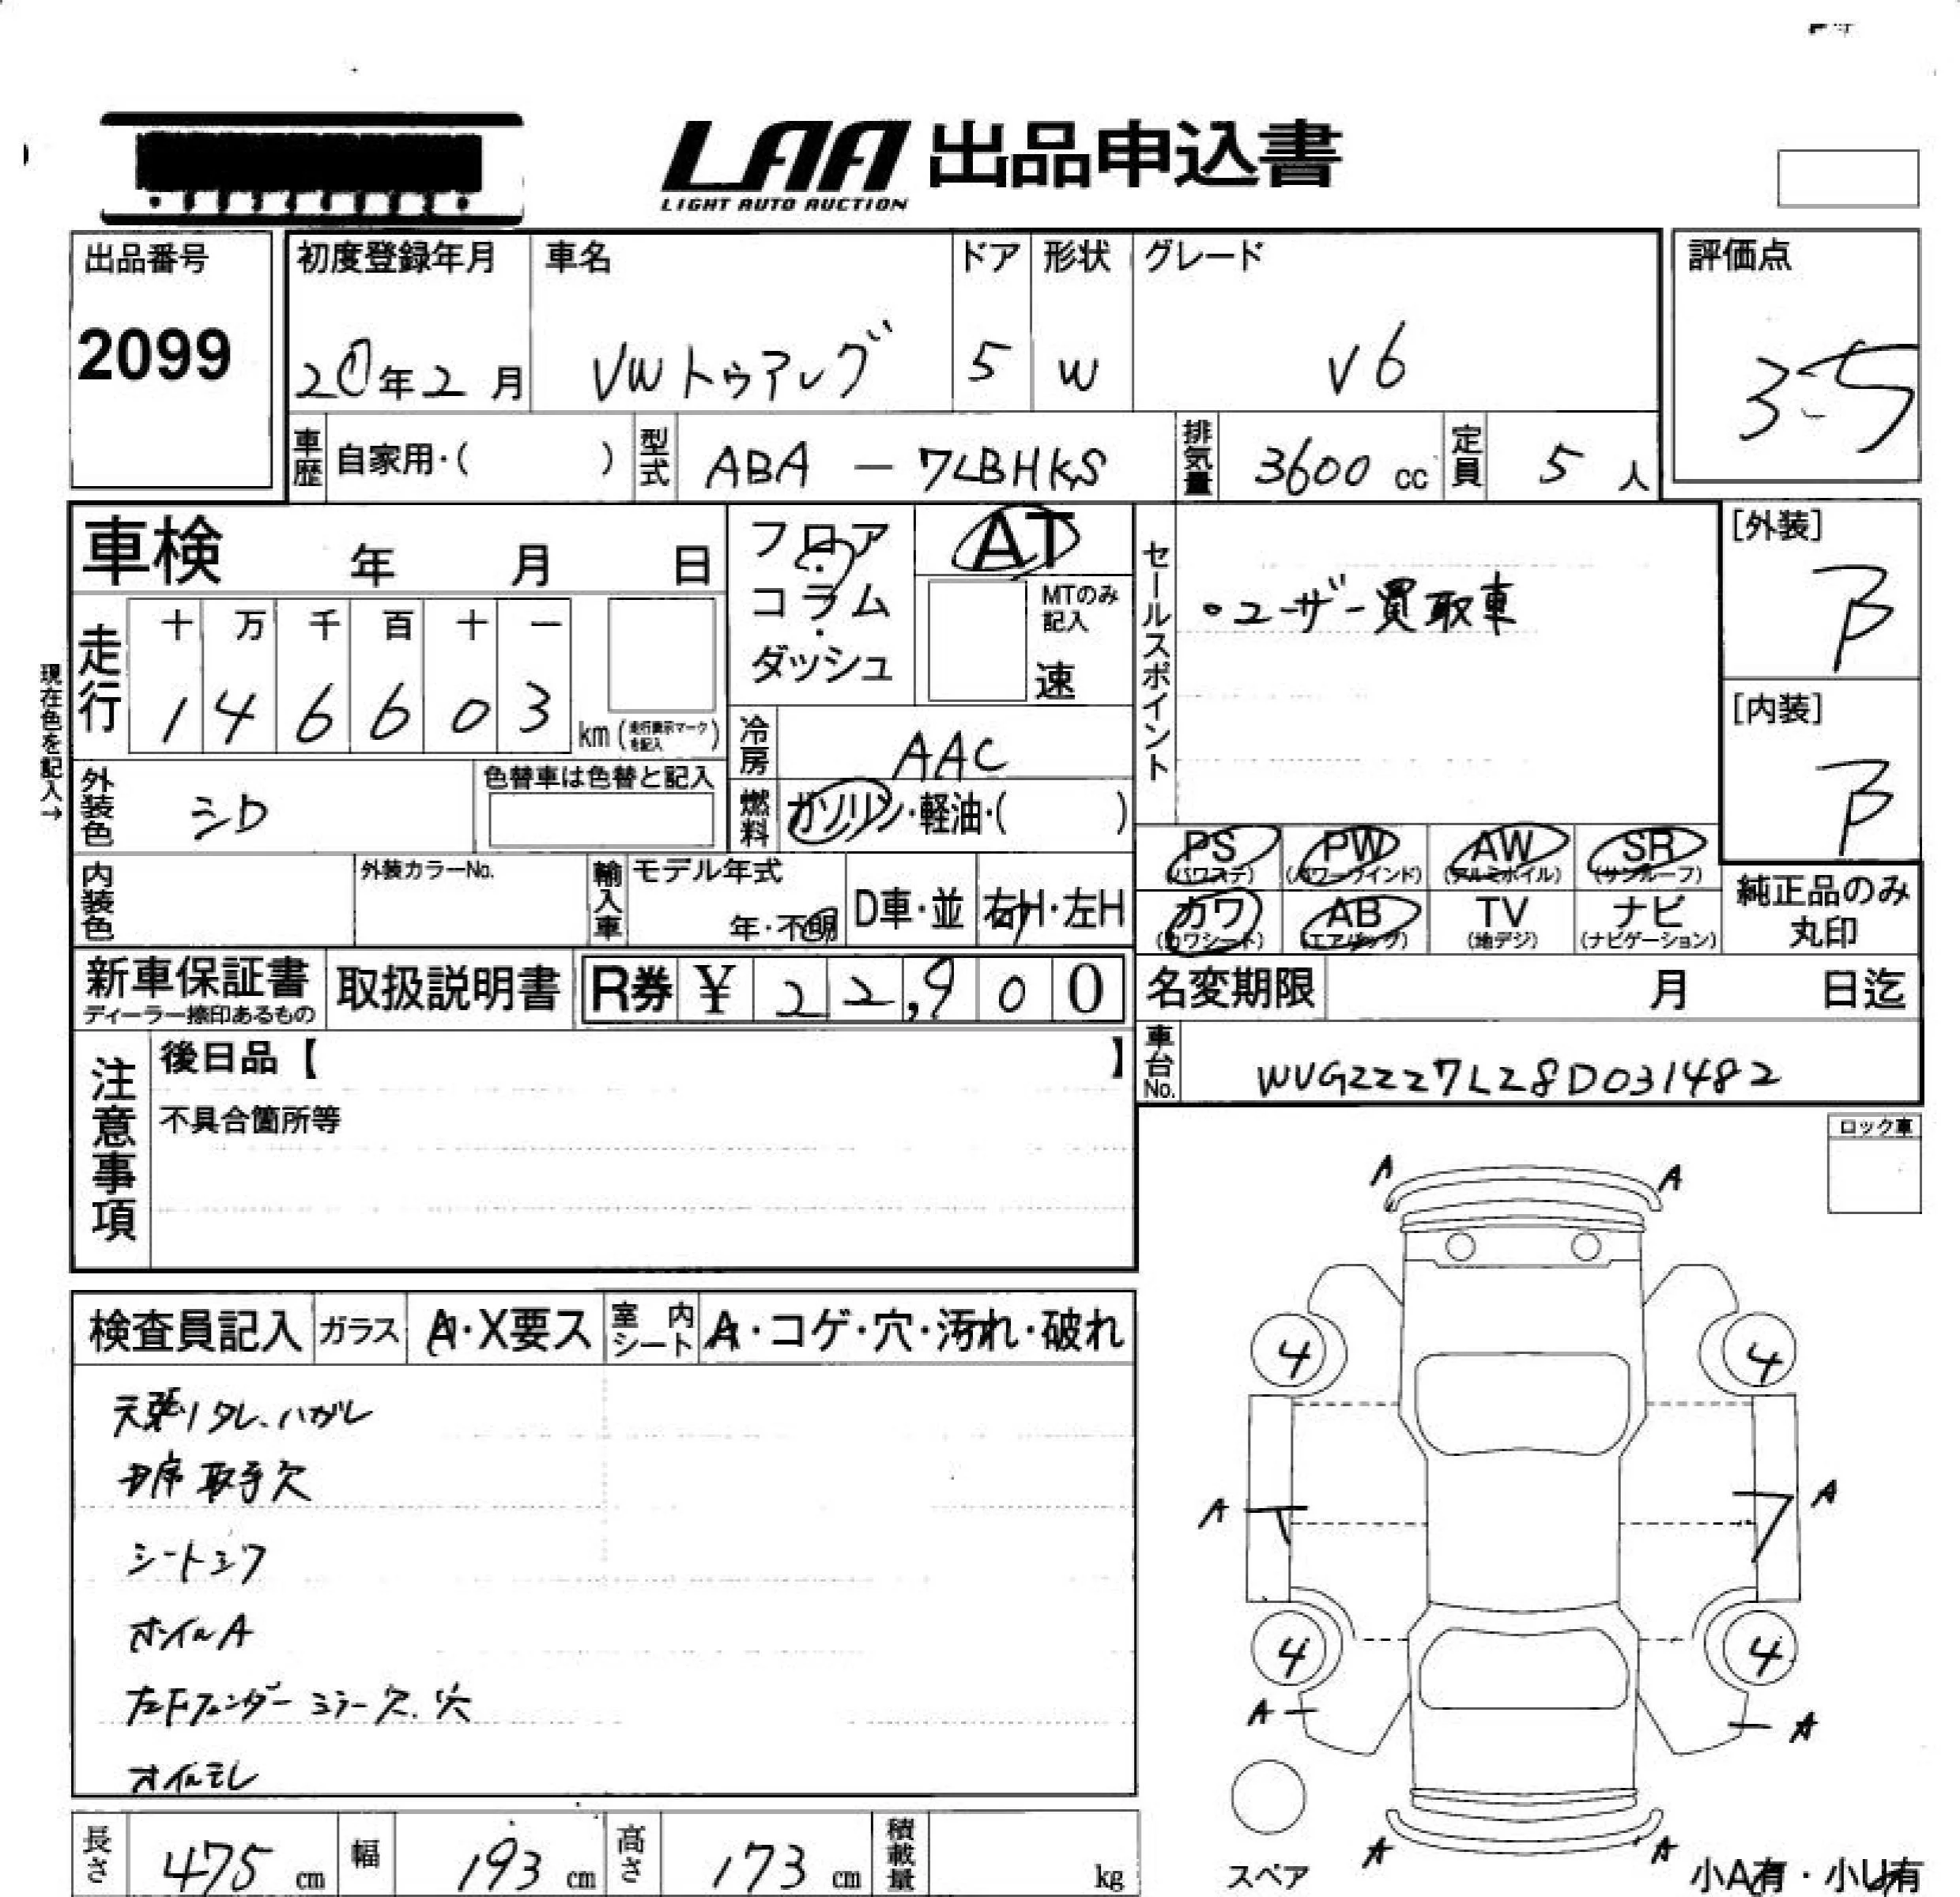 LAA 出品申込書
LIGHT AUTO AUCTION
出品番号
2099
初度登録年月 車名 ドア 形状 グレード
20年2月 VWトゥアレグ 5 W V6
評価点
3.5
車歴 自家用・( ) 型式 ABA - 7LBHKS 排気量 3600 cc 定員 5 人
車検 年 月 日
フロア・コラム・ダッシュ
AT
MTのみ記入
速
現在色を記入→
走行 十 万 千 百 十 一
1 4 6 6 0 3 km (走行表示マークを記入)
冷房 AAC
燃料 ガソリン・軽油・( )
外装色 シロ
色替車は色替と記入
セールスポイント
・ユーザー買取車
[外装]
B
[内装]
B
内装色 外装カラーNo. 輸入車 モデル年式
年・不明 D車・並 右H・左H
PS (パワステ) PW (パワーウインド) AW (アルミホイル) SR (サンルーフ)
カワ (カワシート) AB (エアバック) TV (地デジ) ナビ (ナビゲーション)
純正品のみ
丸印
新車保証書
ディーラー捺印あるもの
取扱説明書
R券 ¥ 22,900
名変期限 月 日迄
車台No. WVGZZZ7LZ8D031482
注意事項
後日品【 】
不具合箇所等
ロック車
検査員記入 ガラス A・X要ス 室内シート A・コゲ・穴・汚れ・破れ
天張リタレ、ハガレ
取手欠
シートシワ
ホイルA
左Fフェンダーミラー欠、穴
オイルモレ
A A
4 4
A A
4 4
A A
A A
スペア
小A有・小U有
長さ 475 cm 幅 193 cm 高さ 173 cm 積載量 kg